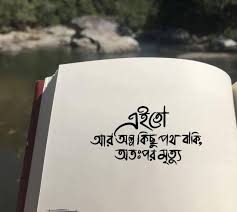 এইতো
আর অল্প কিছু পথ বাকি,
অতঃপর মৃত্যু